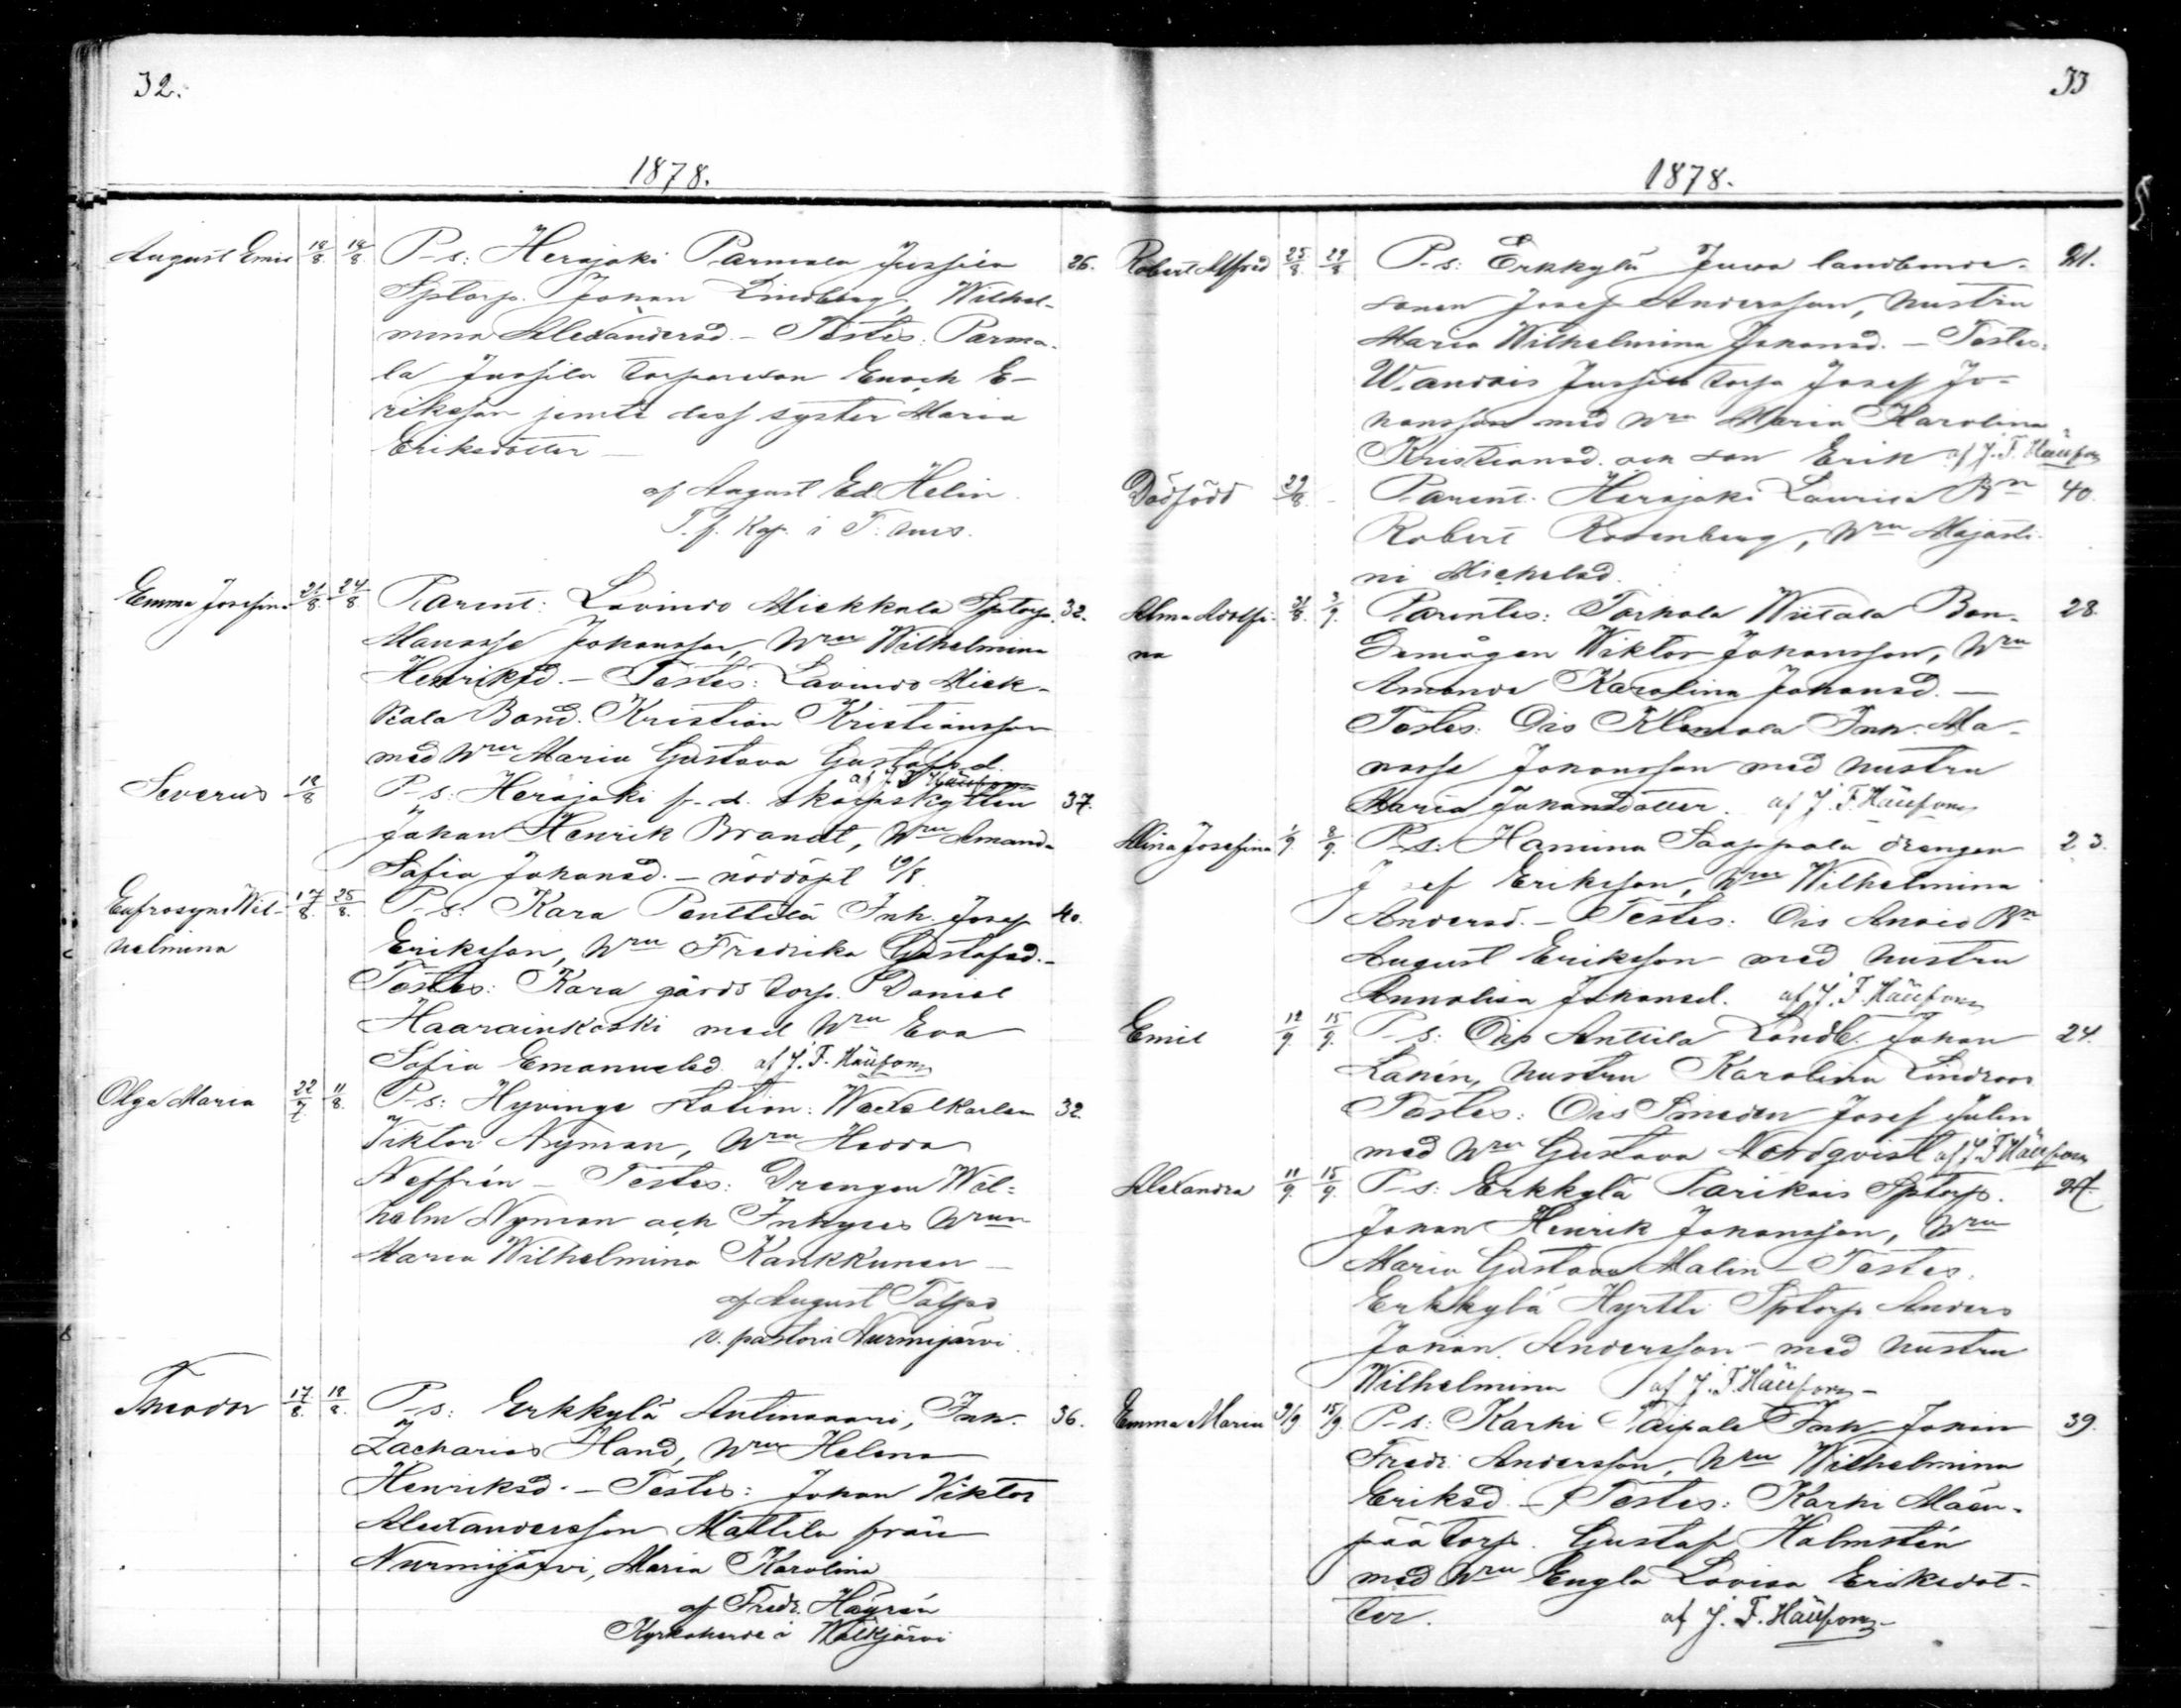 32.
1878.
August Emil 18/8 18/8 P-s: Herajoki Parmala Jussila 26.
Sptorp. Johan Lindberg, Wilhel-
mina Alexandersd. - Testes: Parma-
la Jussila torpareson Enoch E-
riksson jemte dess syster Maria
Eriksdotter -
af August Ed. Helin.
T. f. Kap. i T:hus.
Emma Josefina 21/8 24/8 Parent: Lavindo Mickkala Sptorp. 32.
Manasse Johansson, Hru Wilhelmina
Henriksd. - Testes: Lavindo Mick-
kala Bond. Kristian Kristiansson
med Hru Maria Gustava Gustafsd.
af J. F. Häufom
Severus 18/8 P-s: Herajoki f.d. skarpskytten 37.
Johan Henrik Brandt, Hru Amanda
Sofia Johansd. - nöddöpt 19/8.
Eufrosyne Wil- 17/8 25/8 P-s: Kara Penttilä Inh. Josef 40.
helmina
Eriksson, Hru Fredrika Gustafsd. -
Testes: Kara gårds torp. Daniel
Haarainkoski med Hru Eva
Sofia Emanuelsd. af J. F. Häufom
Olga Maria 22/7 11/8 P-s: Hyvinge station: Wexelkarlen 32.
Viktor Nyman, Hru Hedda
Neffrén - Testes: Drengen Wil-
helm Nyman och Inhyses Hrun
Maria Wilhelmina Kankkunen -
af August Talpo
v. pastor i Nurmijärvi.
Theodor 17/8 18/8 P-s: Erkkylä Antinsaari, Inh. 36.
Zacharias Hand, Hru Helena
Henriksd. - Testes: Johan Viktor
Alexandersson Mattila från
Nurmijärvi, Maria Karolina
af Fredr. Häyrén
Kyrkoherde i Walkjärvi
33
1878.
Robert Alfred 25/8 29/8 P-s: Erkkylä Juva landbonde- 21.
sonen Josef Andersson, hustru
Maria Wilhelmina Johansd. - Testes:
Wandais Jussila torp. Josef Jo-
hansson med Hru Maria Karolina
Kristiansd. och son Erik af J. F. Häufom
Dödfödd 29/8 - Parent. Herajoki Laurila Bn 40.
Robert Rosenberg, Hru Majasti-
ni Michelsd.
Alma Adolfi- 31/8 3/9 Parentes: Torhola Wiitala Bon- 28.
na
demågen Wiktor Johansson, Hru
Amanda Karolina Johansd. -
Testes: Ois Klemola Inh. Ma-
nasse Johansson med hustru
Maria Johansdotter. af J. F. Häufom
Alina Josefina 1/9 8/9 P-s: Hamina Saappala drengen 23.
J sef Eriksson, Hru Wilhelmina
Andersd. - Testes: Ois Anoio Bn
August Eriksson med hustru
Annalisa Johansd. af J. F. Häufom
Emil 12/9 15/9 P-s: Ois Anttila Landb. Johan 24.
Lahén, hustru Karolina Lindroos
Testes: Ois Smeden Josef Julin
med Hru Gustava Nordqvist af J. F. Häufom
Alexandra 11/9 15/9 P-s: Erkkylä Parikais Sptorp.
Johan Henrik Johansson, Hru
Maria Gustava Malin - Testes.
Erkkylä Hyrtti Sptorp Anders
Johan Andersson med hustru
Wilhelmina af J. F. Häufom -
Emma Maria 9/9 15/9 P-s: Karhi Taipale Inh. Johan 39.
Fredr. Andersson, Hru Wilhelmina
Eriksd. - Testes: Karhi Mäen-
pää torp. Gustaf Holmstén
med Hru Engla Lovisa Eriksdot-
ter. af J. F. Häufom